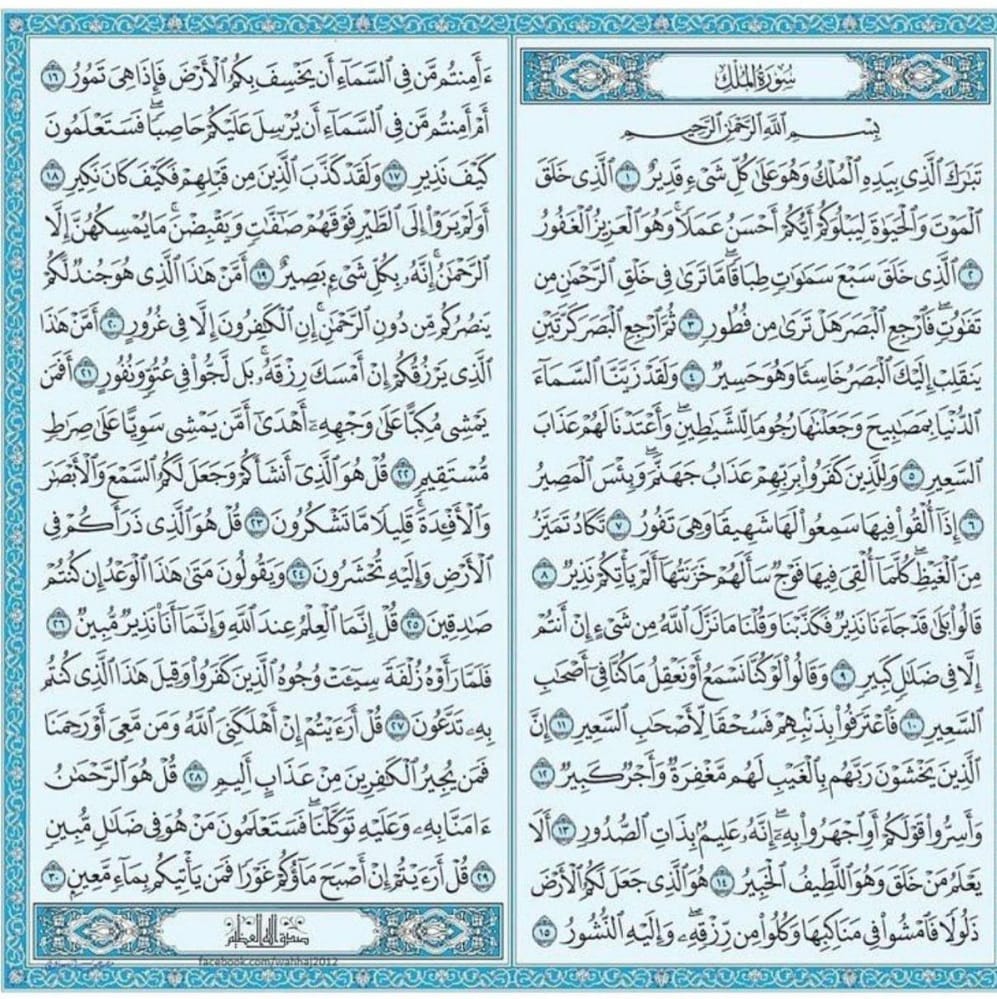 سُورَةُ الْمُلْكِ
بِسْمِ اللَّهِ الرَّحْمَٰنِ الرَّحِيمِ
تَبَٰرَكَ ٱلَّذِى بِيَدِهِ ٱلْمُلْكُ وَهُوَ عَلَىٰ كُلِّ شَىْءٍ قَدِيرٌ ١ ٱلَّذِى خَلَقَ
ٱلْمَوْتَ وَٱلْحَيَوٰةَ لِيَبْلُوَكُمْ أَيُّكُمْ أَحْسَنُ عَمَلًا ۚ وَهُوَ ٱلْعَزِيزُ ٱلْغَفُورُ
٢ ٱلَّذِى خَلَقَ سَبْعَ سَمَٰوَٰتٍ طِبَاقًا ۖ مَّا تَرَىٰ فِى خَلْقِ ٱلرَّحْمَٰنِ مِن
تَفَٰوُتٍ ۖ فَٱرْجِعِ ٱلْبَصَرَ هَلْ تَرَىٰ مِن فُطُورٍ ٣ ثُمَّ ٱرْجِعِ ٱلْبَصَرَ كَرَّتَيْنِ
يَنقَلِبْ إِلَيْكَ ٱلْبَصَرُ خَاسِئًا وَهُوَ حَسِيرٌ ٤ وَلَقَدْ زَيَّنَّا ٱلسَّمَآءَ
ٱلدُّنْيَا بِمَصَٰبِيحَ وَجَعَلْنَٰهَا رُجُومًا لِّلشَّيَٰطِينِ ۖ وَأَعْتَدْنَا لَهُمْ عَذَابَ
ٱلسَّعِيرِ ٥ وَلِلَّذِينَ كَفَرُوا۟ بِرَبِّهِمْ عَذَابُ جَهَنَّمَ ۖ وَبِئْسَ ٱلْمَصِيرُ
٦ إِذَآ أُلْقُوا۟ فِيهَا سَمِعُوا۟ لَهَا شَهِيقًا وَهِىَ تَفُورُ ٧ تَكَادُ تَمَيَّزُ
مِنَ ٱلْغَيْظِ ۖ كُلَّمَآ أُلْقِىَ فِيهَا فَوْجٌ سَأَلَهُمْ خَزَنَتُهَآ أَلَمْ يَأْتِكُمْ نَذِيرٌ ٨
قَالُوا۟ بَلَىٰ قَدْ جَآءَنَا نَذِيرٌ فَكَذَّبْنَا وَقُلْنَا مَا نَزَّلَ ٱللَّهُ مِن شَىْءٍ إِنْ أَنتُمْ
إِلَّا فِى ضَلَٰلٍ كَبِيرٍ ٩ وَقَالُوا۟ لَوْ كُنَّا نَسْمَعُ أَوْ نَعْقِلُ مَا كُنَّا فِىٓ أَصْحَٰبِ
ٱلسَّعِيرِ ١٠ فَٱعْتَرَفُوا۟ بِذَنۢبِهِمْ فَسُحْقًا لِّأَصْحَٰبِ ٱلسَّعِيرِ ١١ إِنَّ
ٱلَّذِينَ يَخْشَوْنَ رَبَّهُم بِٱلْغَيْبِ لَهُم مَّغْفِرَةٌ وَأَجْرٌ كَبِيرٌ ١٢
وَأَسِرُّوا۟ قَوْلَكُمْ أَوِ ٱجْهَرُوا۟ بِهِۦٓ ۖ إِنَّهُۥ عَلِيمٌۢ بِذَاتِ ٱلصُّدُورِ ١٣ أَلَا
يَعْلَمُ مَنْ خَلَقَ وَهُوَ ٱللَّطِيفُ ٱلْخَبِيرُ ١٤ هُوَ ٱلَّذِى جَعَلَ لَكُمُ ٱلْأَرْضَ
ذَلُولًا فَٱمْشُوا۟ فِى مَنَاكِبِهَا وَكُلُوا۟ مِن رِّزْقِهِۦ ۖ وَإِلَيْهِ ٱلنُّشُورُ ١٥
ءَأَمِنتُم مَّن فِى ٱلسَّمَآءِ أَن يَخْسِفَ بِكُمُ ٱلْأَرْضَ فَإِذَا هِىَ تَمُورُ ١٦
أَمْ أَمِنتُم مَّن فِى ٱلسَّمَآءِ أَن يُرْسِلَ عَلَيْكُمْ حَاصِبًا ۖ فَسَتَعْلَمُونَ
كَيْفَ نَذِيرِ ١٧ وَلَقَدْ كَذَّبَ ٱلَّذِينَ مِن قَبْلِهِمْ فَكَيْفَ كَانَ نَكِيرِ ١٨
أَوَلَمْ يَرَوْا۟ إِلَى ٱلطَّيْرِ فَوْقَهُمْ صَٰٓفَّٰتٍ وَيَقْبِضْنَ ۚ مَا يُمْسِكُهُنَّ إِلَّا
ٱلرَّحْمَٰنُ ۚ إِنَّهُۥ بِكُلِّ شَىْءٍۭ بَصِيرٌ ١٩ أَمَّنْ هَٰذَا ٱلَّذِى هُوَ جُندٌ لَّكُمْ
يَنصُرُكُم مِّن دُونِ ٱلرَّحْمَٰنِ ۚ إِنِ ٱلْكَٰفِرُونَ إِلَّا فِى غُرُورٍ ٢٠ أَمَّنْ هَٰذَا
ٱلَّذِى يَرْزُقُكُمْ إِنْ أَمْسَكَ رِزْقَهُۥ ۚ بَل لَّجُّوا۟ فِى عُتُوٍّ وَنُفُورٍ ٢١ أَفَمَن
يَمْشِى مُكِبًّا عَلَىٰ وَجْهِهِۦٓ أَهْدَىٰٓ أَمَّن يَمْشِى سَوِيًّا عَلَىٰ صِرَٰطٍ
مُّسْتَقِيمٍ ٢٢ قُلْ هُوَ ٱلَّذِىٓ أَنشَأَكُمْ وَجَعَلَ لَكُمُ ٱلسَّمْعَ وَٱلْأَبْصَٰرَ
وَٱلْأَفْـِٔدَةَ ۖ قَلِيلًا مَّا تَشْكُرُونَ ٢٣ قُلْ هُوَ ٱلَّذِى ذَرَأَكُمْ فِى
ٱلْأَرْضِ وَإِلَيْهِ تُحْشَرُونَ ٢٤ وَيَقُولُونَ مَتَىٰ هَٰذَا ٱلْوَعْدُ إِن كُنتُمْ
صَٰدِقِينَ ٢٥ قُلْ إِنَّمَا ٱلْعِلْمُ عِندَ ٱللَّهِ وَإِنَّمَآ أَنَا۠ نَذِيرٌ مُّبِينٌ ٢٦
فَلَمَّا رَأَوْهُ زُلْفَةً سِيٓـَٔتْ وُجُوهُ ٱلَّذِينَ كَفَرُوا۟ وَقِيلَ هَٰذَا ٱلَّذِى كُنتُم
بِهِۦ تَدَّعُونَ ٢٧ قُلْ أَرَءَيْتُمْ إِنْ أَهْلَكَنِىَ ٱللَّهُ وَمَن مَّعِىَ أَوْ رَحِمَنَا
فَمَن يُجِيرُ ٱلْكَٰفِرِينَ مِنْ عَذَابٍ أَلِيمٍ ٢٨ قُلْ هُوَ ٱلرَّحْمَٰنُ
ءَامَنَّا بِهِۦ وَعَلَيْهِ تَوَكَّلْنَا ۖ فَسَتَعْلَمُونَ مَنْ هُوَ فِى ضَلَٰلٍ مُّبِينٍ
٢٩ قُلْ أَرَءَيْتُمْ إِنْ أَصْبَحَ مَآؤُكُمْ غَوْرًا فَمَن يَأْتِيكُم بِمَآءٍ مَّعِينٍۭ ٣٠
صدق الله العظيم
facebook.com/wahhaj2012